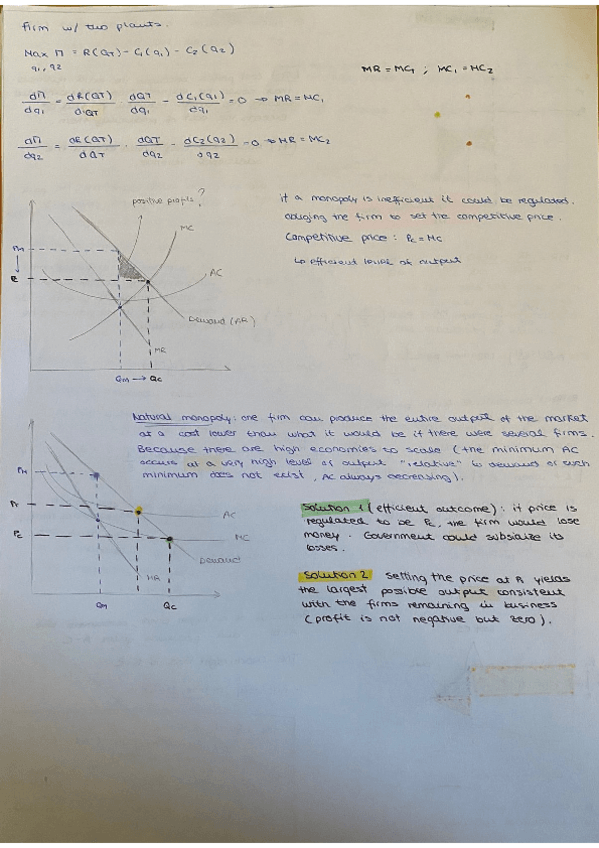 Firm w/ two plants.
Max Π = R(QT) - C1(q1) - C2(q2)
q1, q2
MR = MCT ; MC1 = MC2
dΠ/dq1 = dR(QT)/dQT dQT/dq1 - dC1(q1)/dq1 = 0 → MR = MC1
dΠ/dq2 = dR(QT)/dQT · dQT/dq2 - dC2(q2)/dq2 = 0 → MR = MC2
positive profits?
MC
Pm
Pc
AC
Demand (AR)
MR
Qm → Qc
if a monopoly is inefficient it could be regulated.
obliging the firm to set the competitive price.
Competitive price : Pc = MC
↳ efficient level of output
Natural monopoly: one firm can produce the entire output of the market
at a cost lower than what it would be if there were several firms.
Because there are high economies to scale (the minimum AC
occurs at a very high level of output "relative" to demand or such
minimum does not exist, AC always decreasing).
Pm
Pr
Pc
AC
MC
Demand
MR
Qm
Qc
Solution 1 (efficient outcome) : if price is
regulated to be Pc, the firm would lose
money. Government could subsidize its
losses.
Solution 2 Setting the price at Pr yields
the largest possible output consistent
with the firms remaining in business
(profit is not negative but zero).